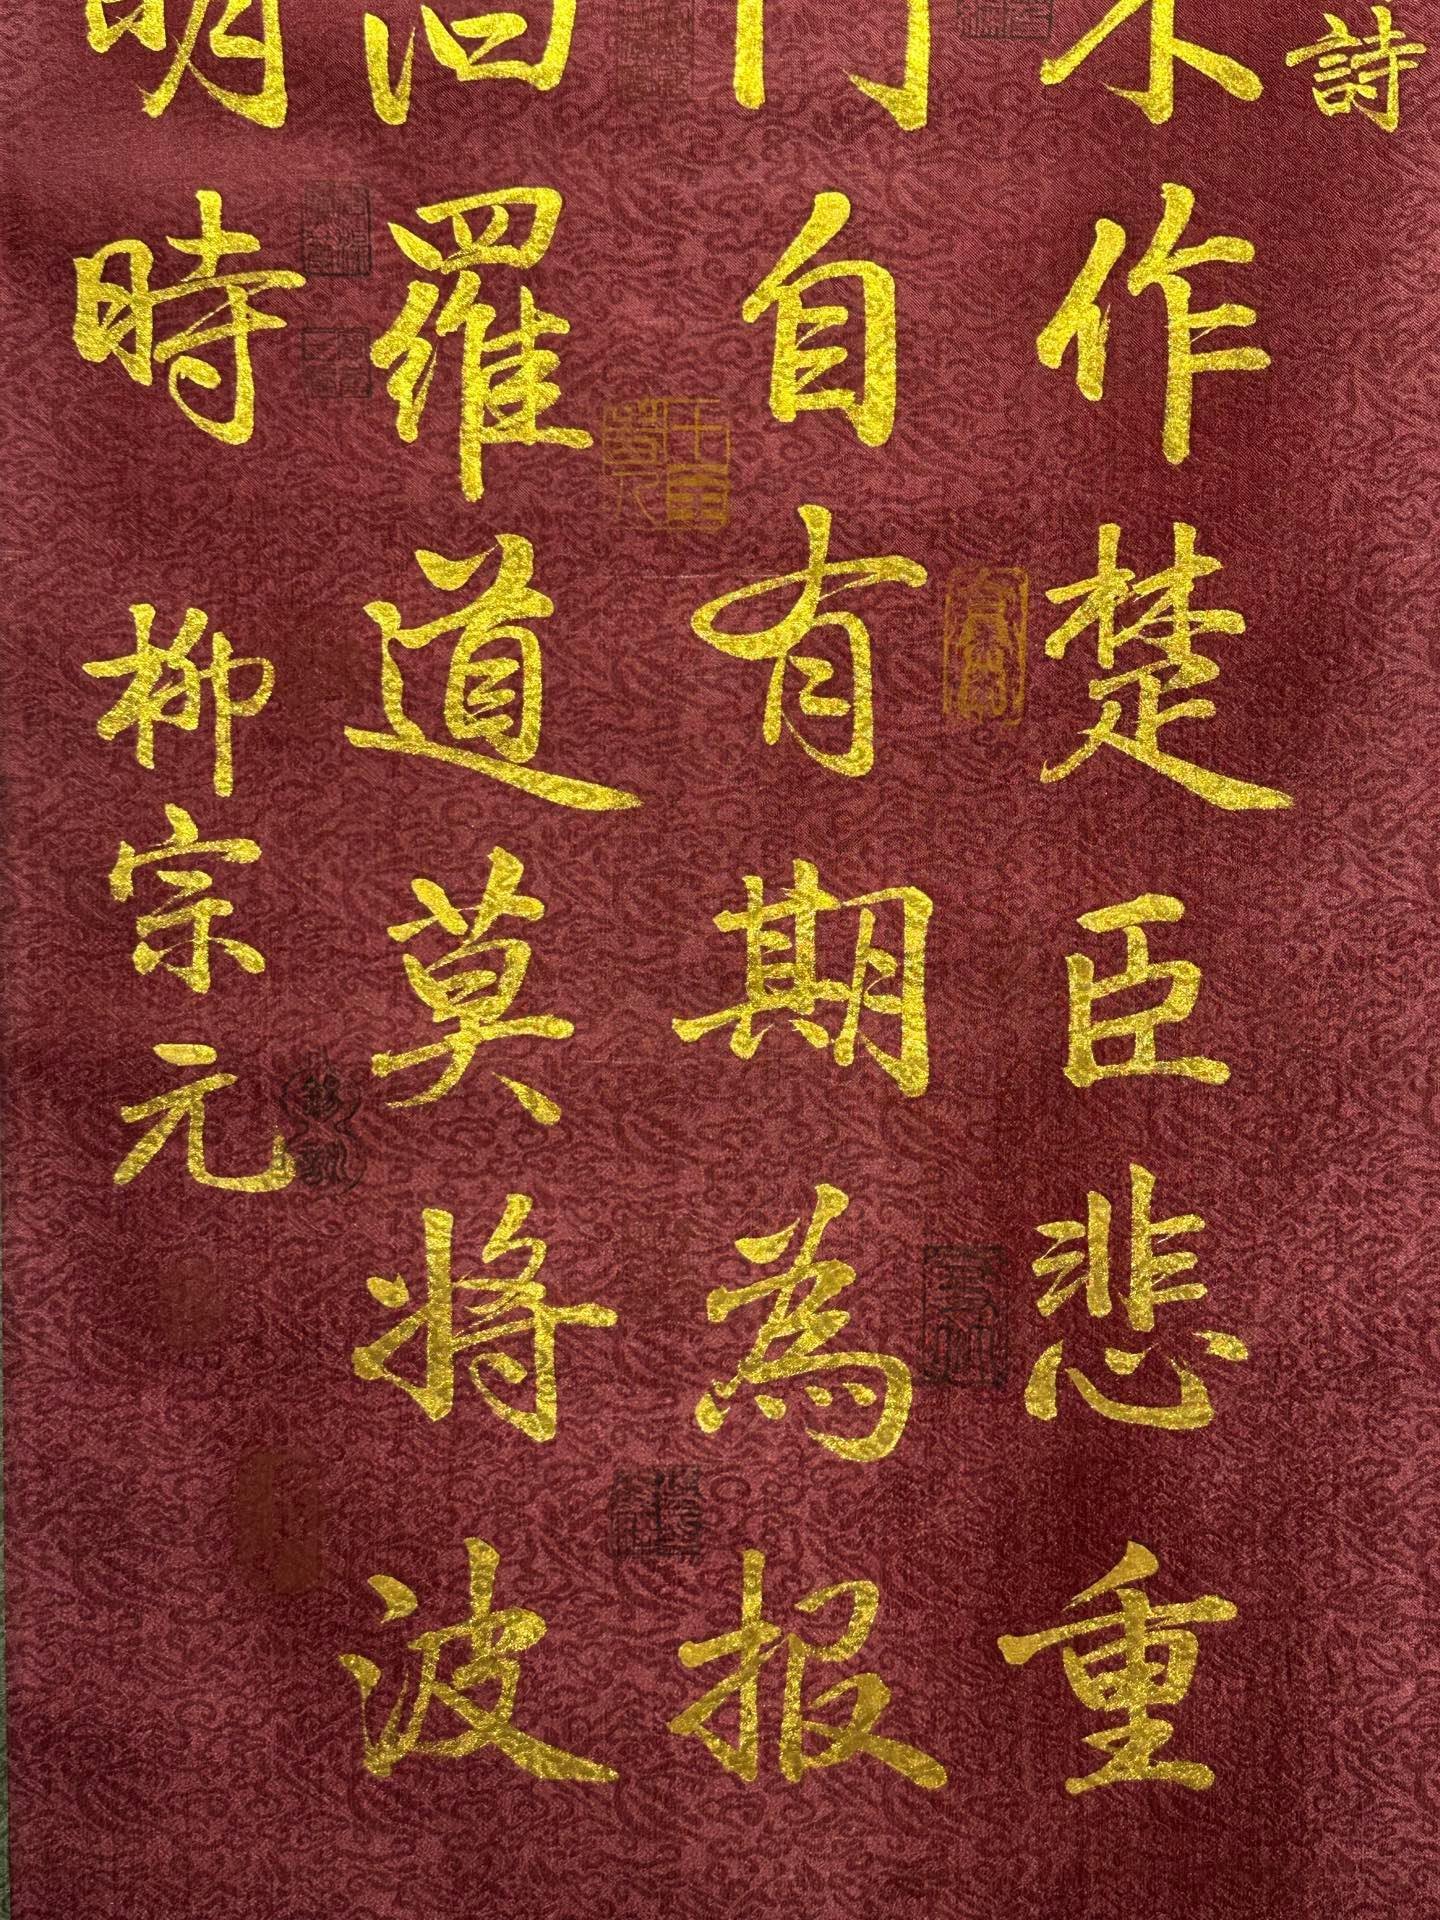 詩
不作楚臣悲重
門自有期為報
汨羅道莫將波
明時
柳宗元